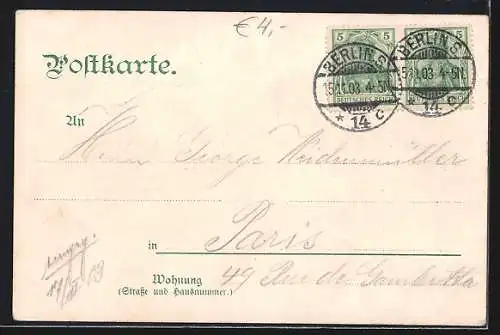 € 4,-
5 5 5
BERLIN.S. BERLIN.S.
15.11.03. 4-5N. 15.11.03. 4-5N.
DEUTSCHES REICH
* 14 c * 14 c
Postkarte.
An
Herrn George Weidenmüller
in Paris
Wohnung 49 Rue de Gambetta
(Straße und Hausnummer.)